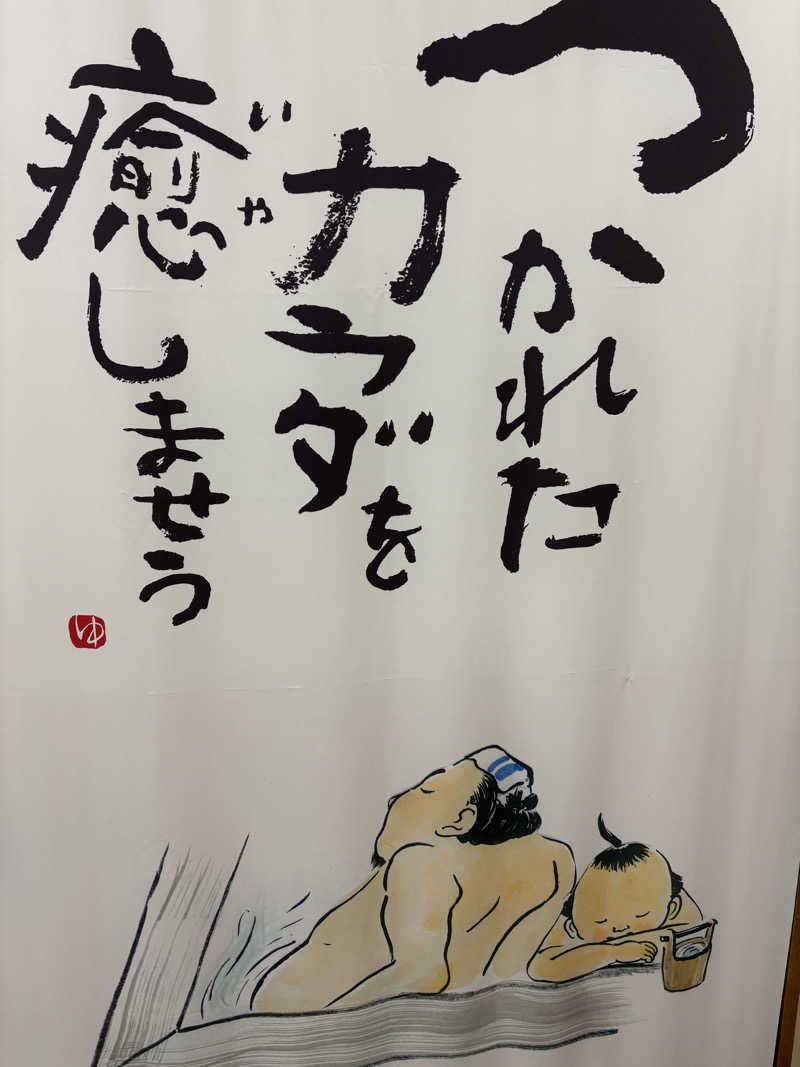 つかれた
カラダを
癒しませう
いや
ゆ